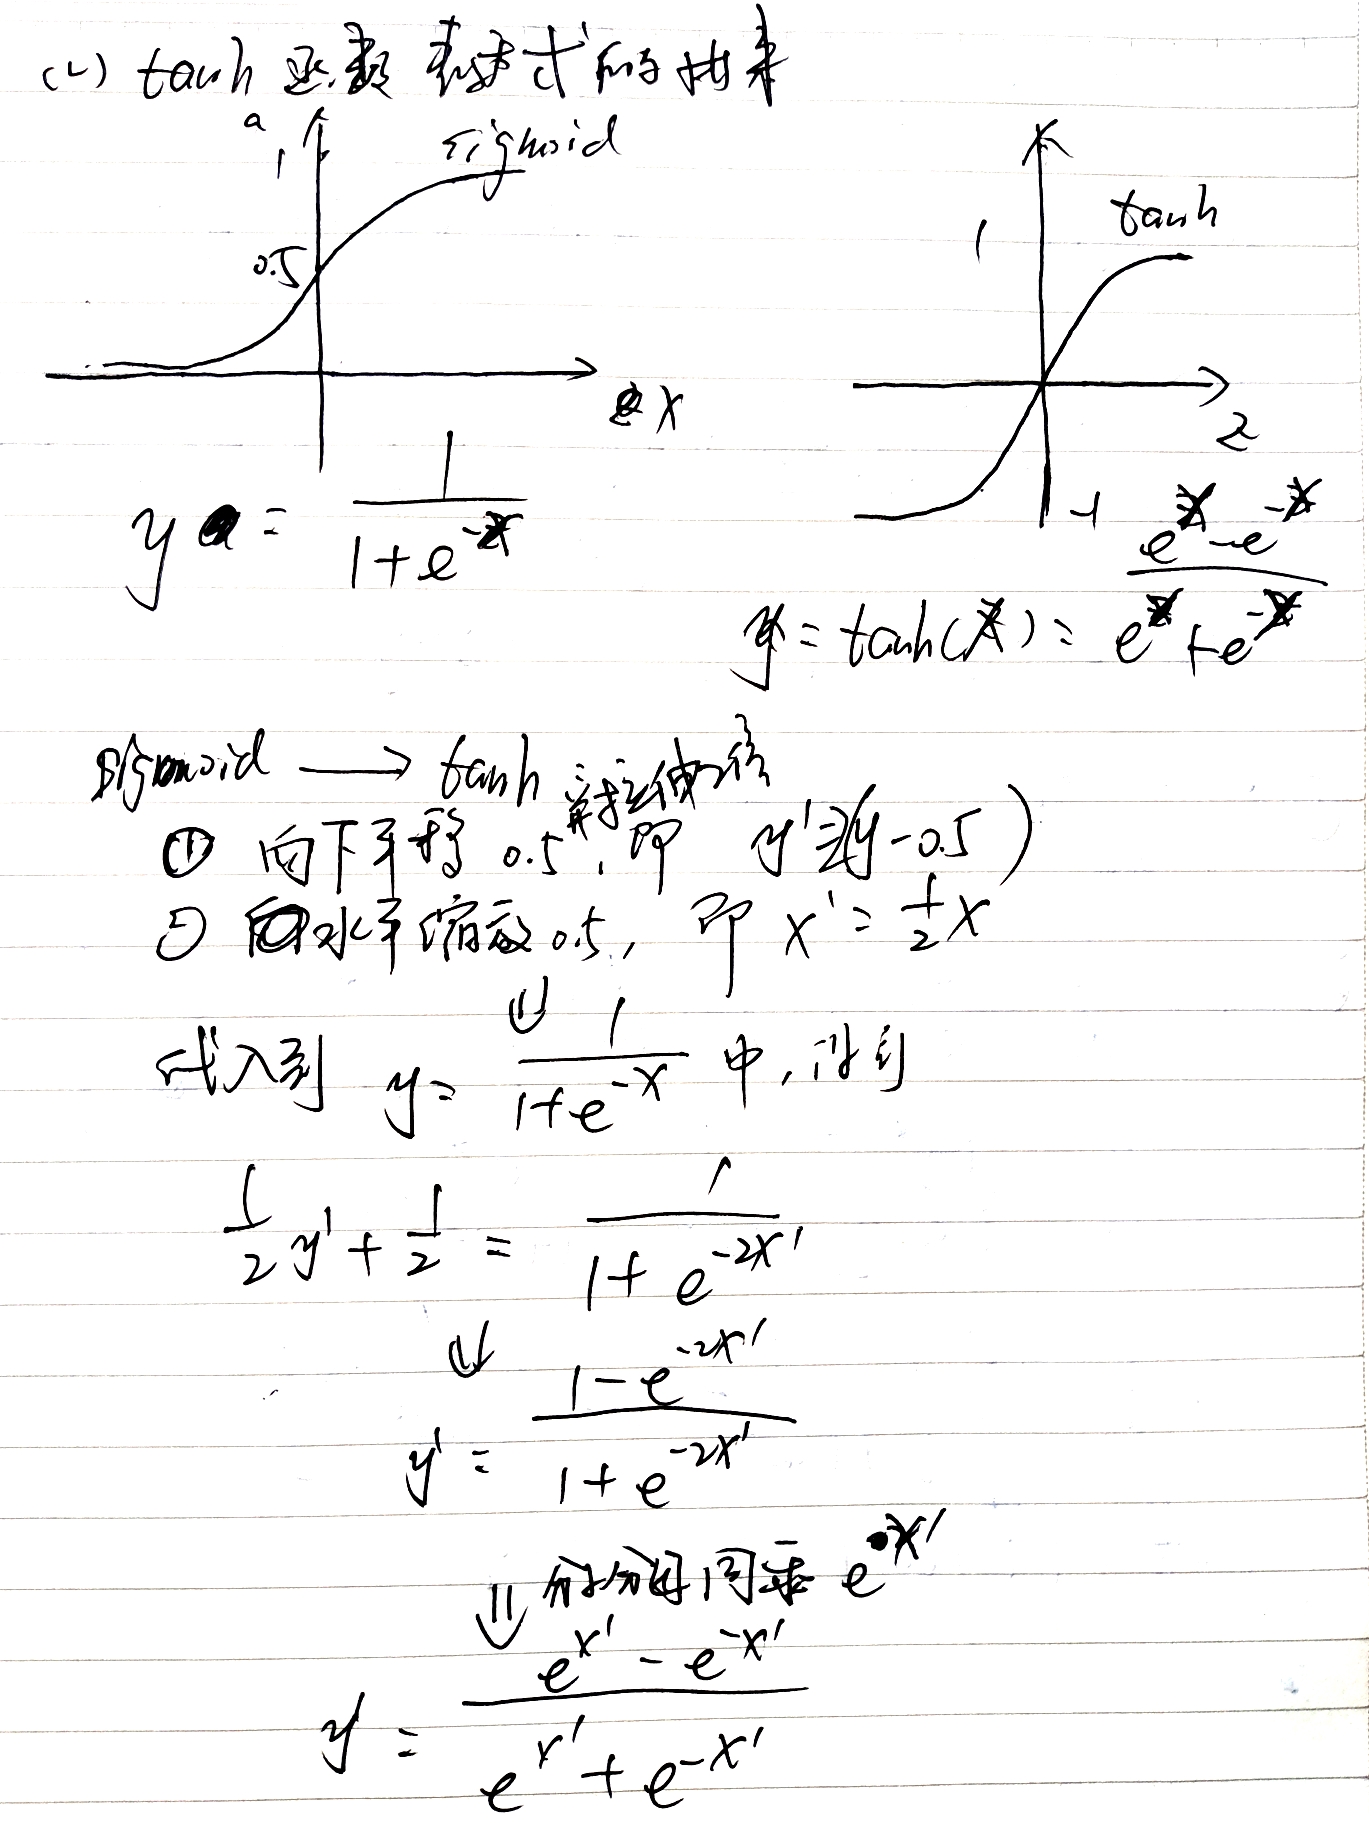 (2) tanh 函数表达式的由来
a
1
sigmoid
0.5
x
tanh
1
z
-1
y = 1/(1+e^-x)
y = tanh(x) = (e^x - e^-x)/(e^x + e^-x)
sigmoid → tanh
① 向下平移 0.5, 再拉伸2倍, 即 y' = 2(y-0.5)
② 水平缩放 0.5, 即 x' = 1/2 x
⇓
代入到 y = 1/(1+e^-x) 中, 得到
1/2 y' + 1/2 = 1/(1+e^-2x')
⇓
y' = (1-e^-2x')/(1+e^-2x')
⇓ 分子分母同乘 e^x'
y' = (e^x' - e^-x')/(e^x' + e^-x')